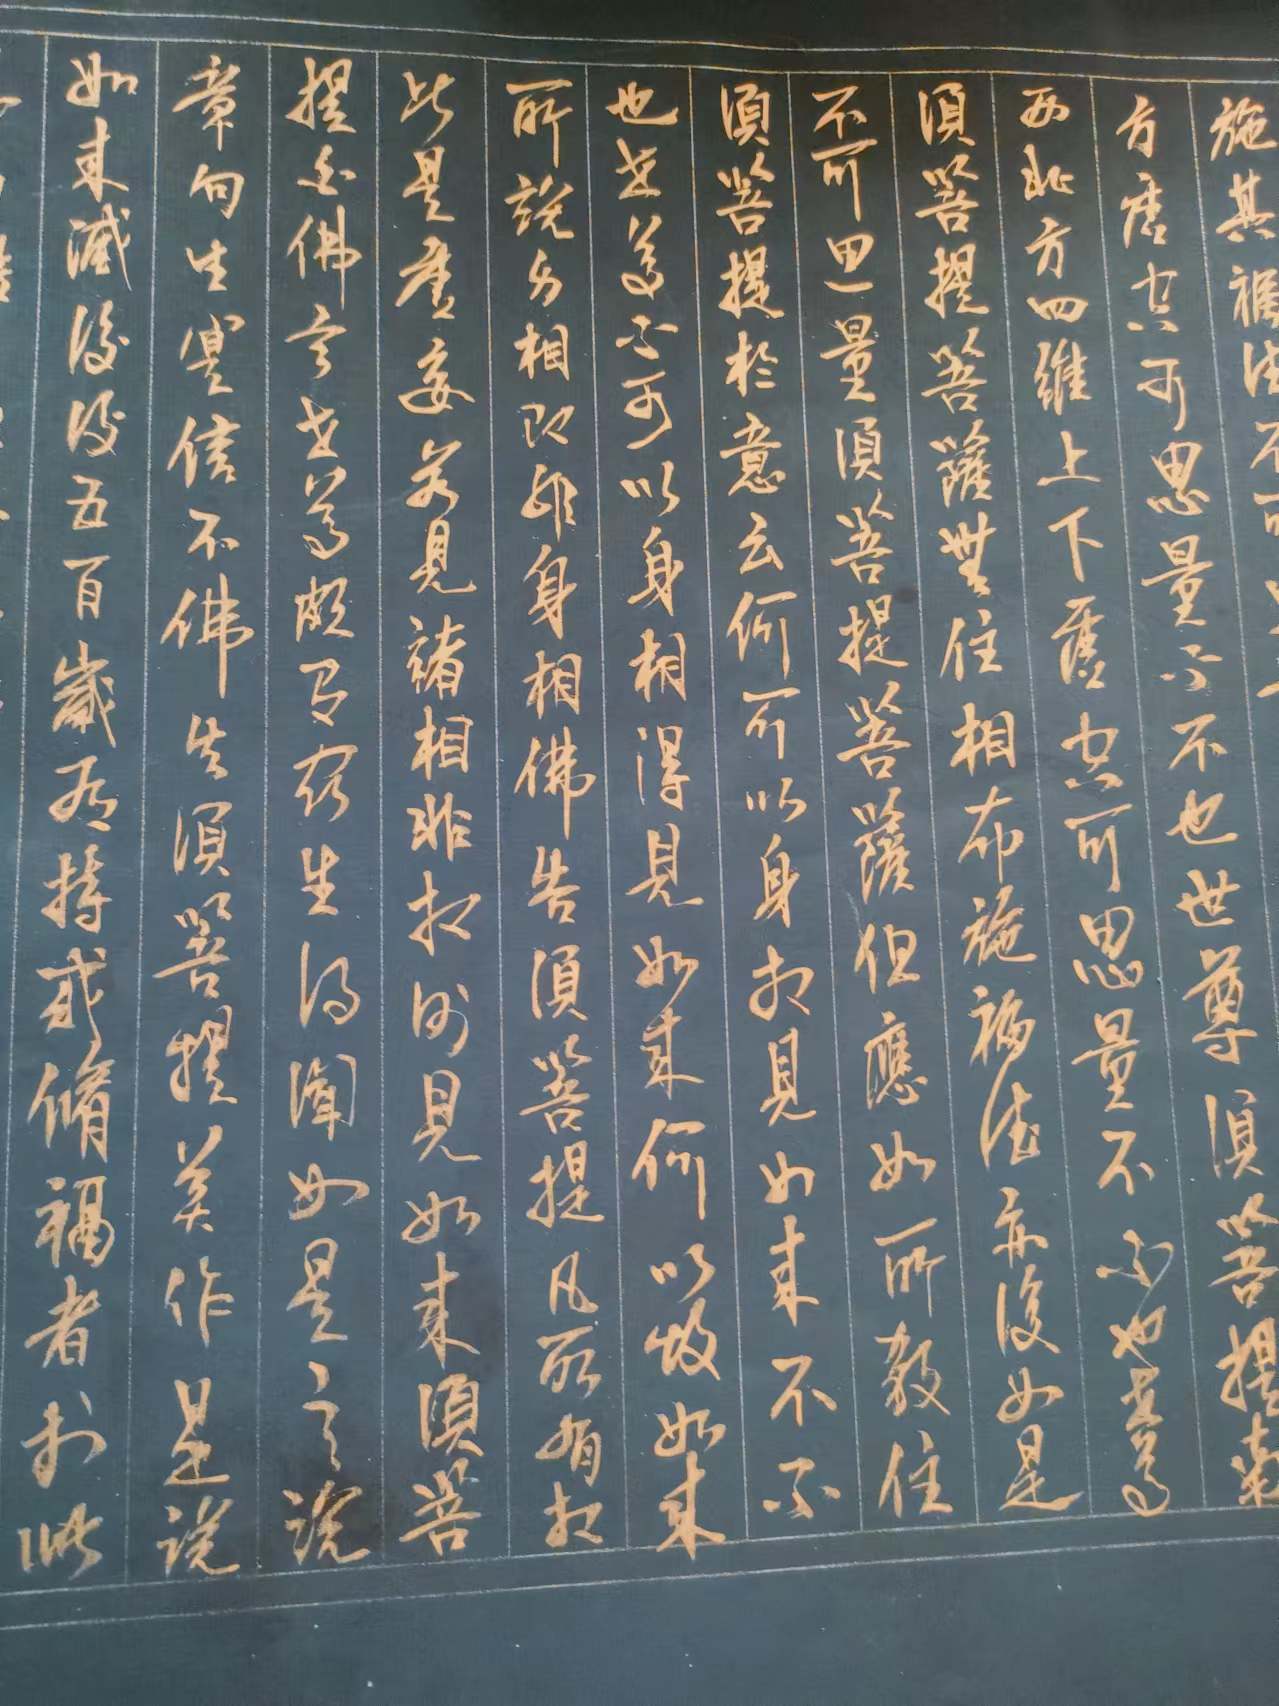 施其福德不可思
方虛空可思量不不也世尊須菩提南
西北方四維上下虛空可思量不不也世尊
須菩提菩薩無住相布施福德亦復如是
不可思量須菩提菩薩但應如所教住
須菩提於意云何可以身相見如來不不
也世尊不可以身相得見如來何以故如來
所說身相即非身相佛告須菩提凡所有相
皆是虛妄若見諸相非相則見如來須菩
提白佛言世尊頗有眾生得聞如是言說
章句生實信不佛告須菩提莫作是說
如來滅後後五百歲有持戒脩福者於此